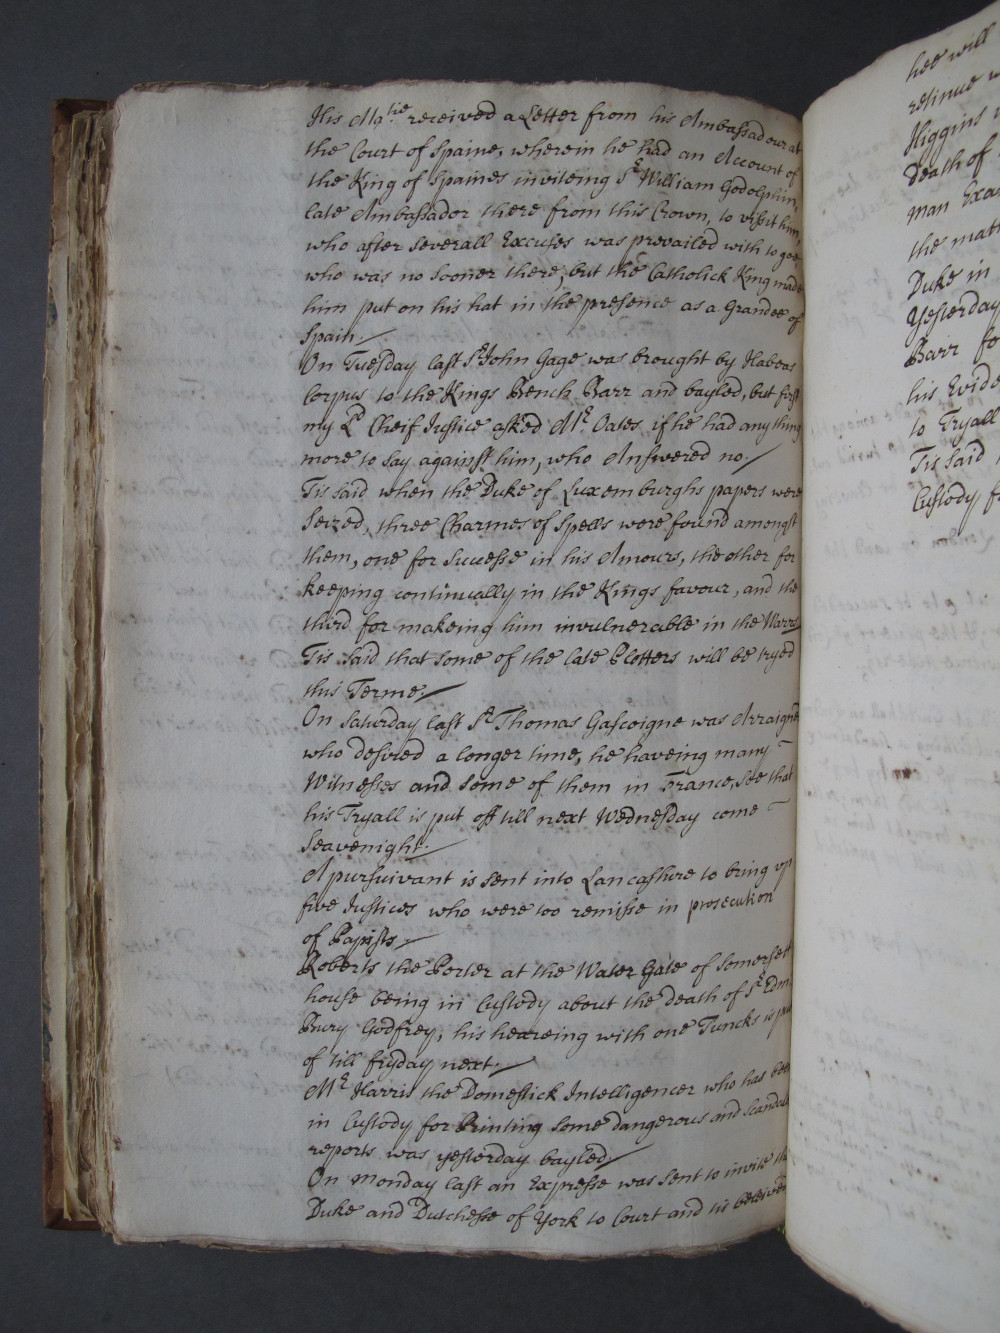 His Ma:tie received a Letter from his Ambassadour at
the Court of Spaine, wherein he had an Account of
the King of Spaines inviteing Sr William Godolphin,
late Ambassador there from this Crown, to visit him,
who after severall Excuses was prevailed with to goe
who was no sooner there, but the Catholick King made
him put on his hat in the presence as a Grandee of
Spain./
On Tuesday last Sr John Gage was brought by Habeas
Corpus to the Kings Bench Barr and bayled, but first
my Ld Cheif Justice asked Mr. Oates if he had any thing
more to say against him, who Answered no./
Tis said when the Duke of Luxemburghs papers were
Seized, three Charmes of Spells were found amongst
them, one for Successe in his Amours, the other for
keeping continually in the Kings favour, and the
third for makeing him invulnerable in the Warrs/
Tis said that some of the late Plotters will be tryed
this Terme./
On Saturday last Sr Thomas Gascoigne was Arraigned
who desired a longer time, he haveing many
Witnesses and some of them in France, soe that
his Tryall is put off till next Wednesday come
Seavenight./
A pursuivant is sent into Lancashire to bring up
five Justices who were too remisse in prosecution
of Papists./
Roberts the Porter at the Water Gate of Somersett
house being in Custody about the death of Sr Edm
Bury Godfrey, his heareing with one Tuncks is put
of till fryday next./
Mr Harris the Domestick Intelligencer who has been
in Custody for Printing some dangerous and Scandalo
reports was yesterday bayled./
On Monday last an Expresse was sent to invite the
Duke and Dutchesse of York to Court and tis beleived
hee will
retinue
Higgins
Death of
man Exa
the matt
Duke in
Yesterday
Barr fo
his Evide
to Tryall
Tis said
Custody f